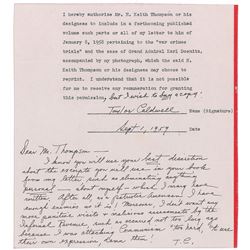 I hereby authorize Mr. H. Keith Thompson or his
designees to include in a forthcoming published
volume such parts or all of my letter to him of
January 8, 1958 pertaining to the "war crimes
trials" and the case of Grand Admiral Karl Doenitz,
accompanied by my photograph, which the said H.
Keith Thompson or his designees may choose to
reprint. I understand that it is not possible for
me to receive any remuneration for granting
this permission, but I wish to
Taylor Caldwell Name (Signature)
Sept 1, 1959 Date
Dear Mr. Thompson—
I know you will use your best discretion
about the excerpts you will use in your book
from my letter, and eliminating anything
personal — about myself — which I may have
written. After all, as a "native American", I have
enough enemies as it is! Moreover, I don't want any
more punitive visits or malicious assaults by the
Internal Revenue, such as occurred not too long ago
because I was attacking Communism "too hard", to use
their own expression, damn them! T.C.